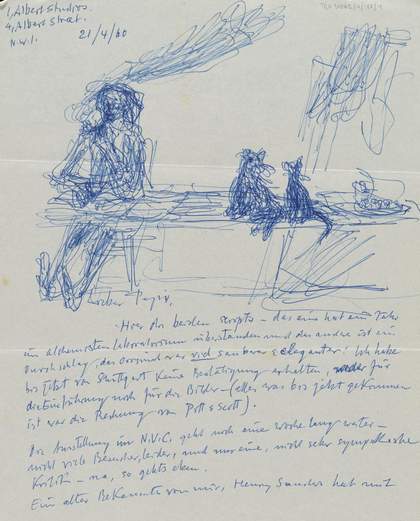 1, Albert Studios.
4, Albert Street.
N.W.1.
21/4/60
Lieber
Hier die beiden scripts – das eine hat ein Jahr
im alchemisten Laboratorium überstanden und das andere ist ein
Durchschlag, das Original war viel sauberer & eleganter! Ich habe
bis jetzt von Stuttgart keine Bestätigung erhalten, weder für
die Einführung noch für die Bilder – (alles was bis jetzt gekommen
ist war die Rechnung von Pitt & Scott).
Die Ausstellung im N.V.C. geht noch eine Woche lang weiter –
nicht viele Besucher, leider, und nur eine, nicht sehr sympathische
Kritik – na, so gehts eben.
Ein alter Bekannter von mir, Henry Sanders hat mit